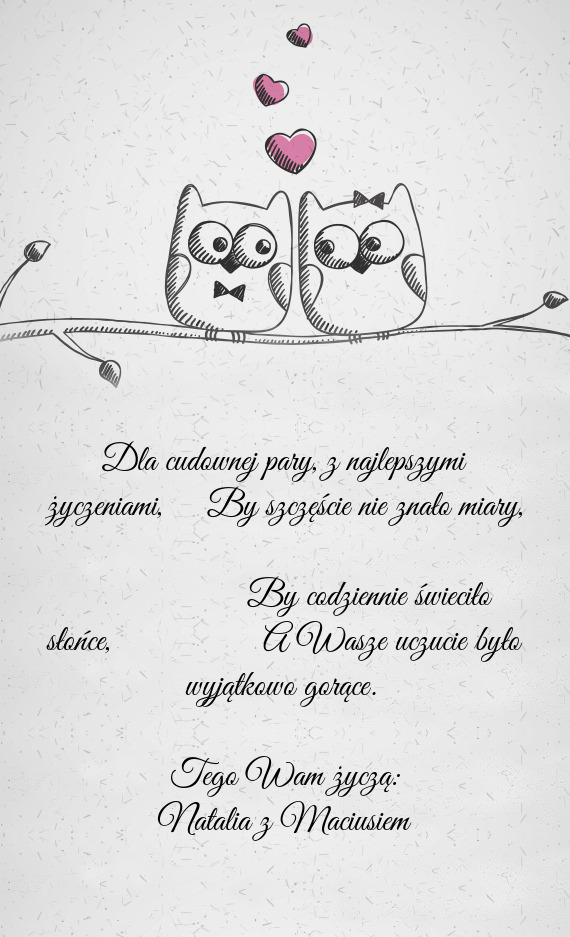 Dla cudownej pary, z najlepszymi
życzeniami, By szczęście nie znało miary,
By codziennie świeciło
słońce, A Wasze uczucie było
wyjątkowo gorące.
Tego Wam życzą:
Natalia z Maciusiem